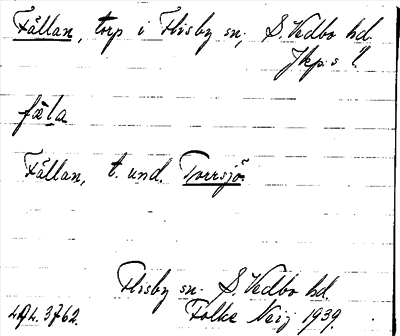 Fållan, torp i Flisby sn, S. Vedbo hd.
Jkp:s l.
fåla
Fållan, t. und. Torrsjö.
Flisby sn. S. Vedbo hd.
Folke 1939.
3762.